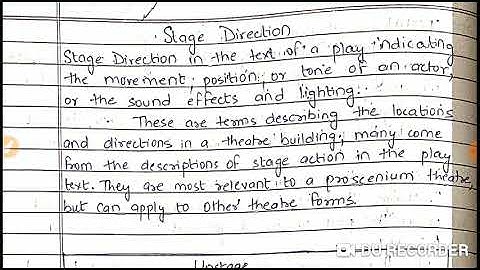 Stage Direction
Stage Direction in the text of a play indicating
the movement, position, or tone of an actor,
or the sound effects and lighting.
These are terms describing the locations
and directions in a theatre building; many come
from the descriptions of stage action in the play
text. They are most relevant to a proscenium theatre,
but can apply to other theatre forms.
DU RECORDER
Upstage